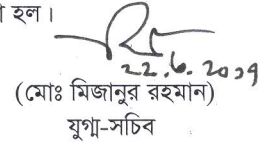 হল।
22.6.2017
(মোঃ মিজানুর রহমান)
যুগ্ম-সচিব